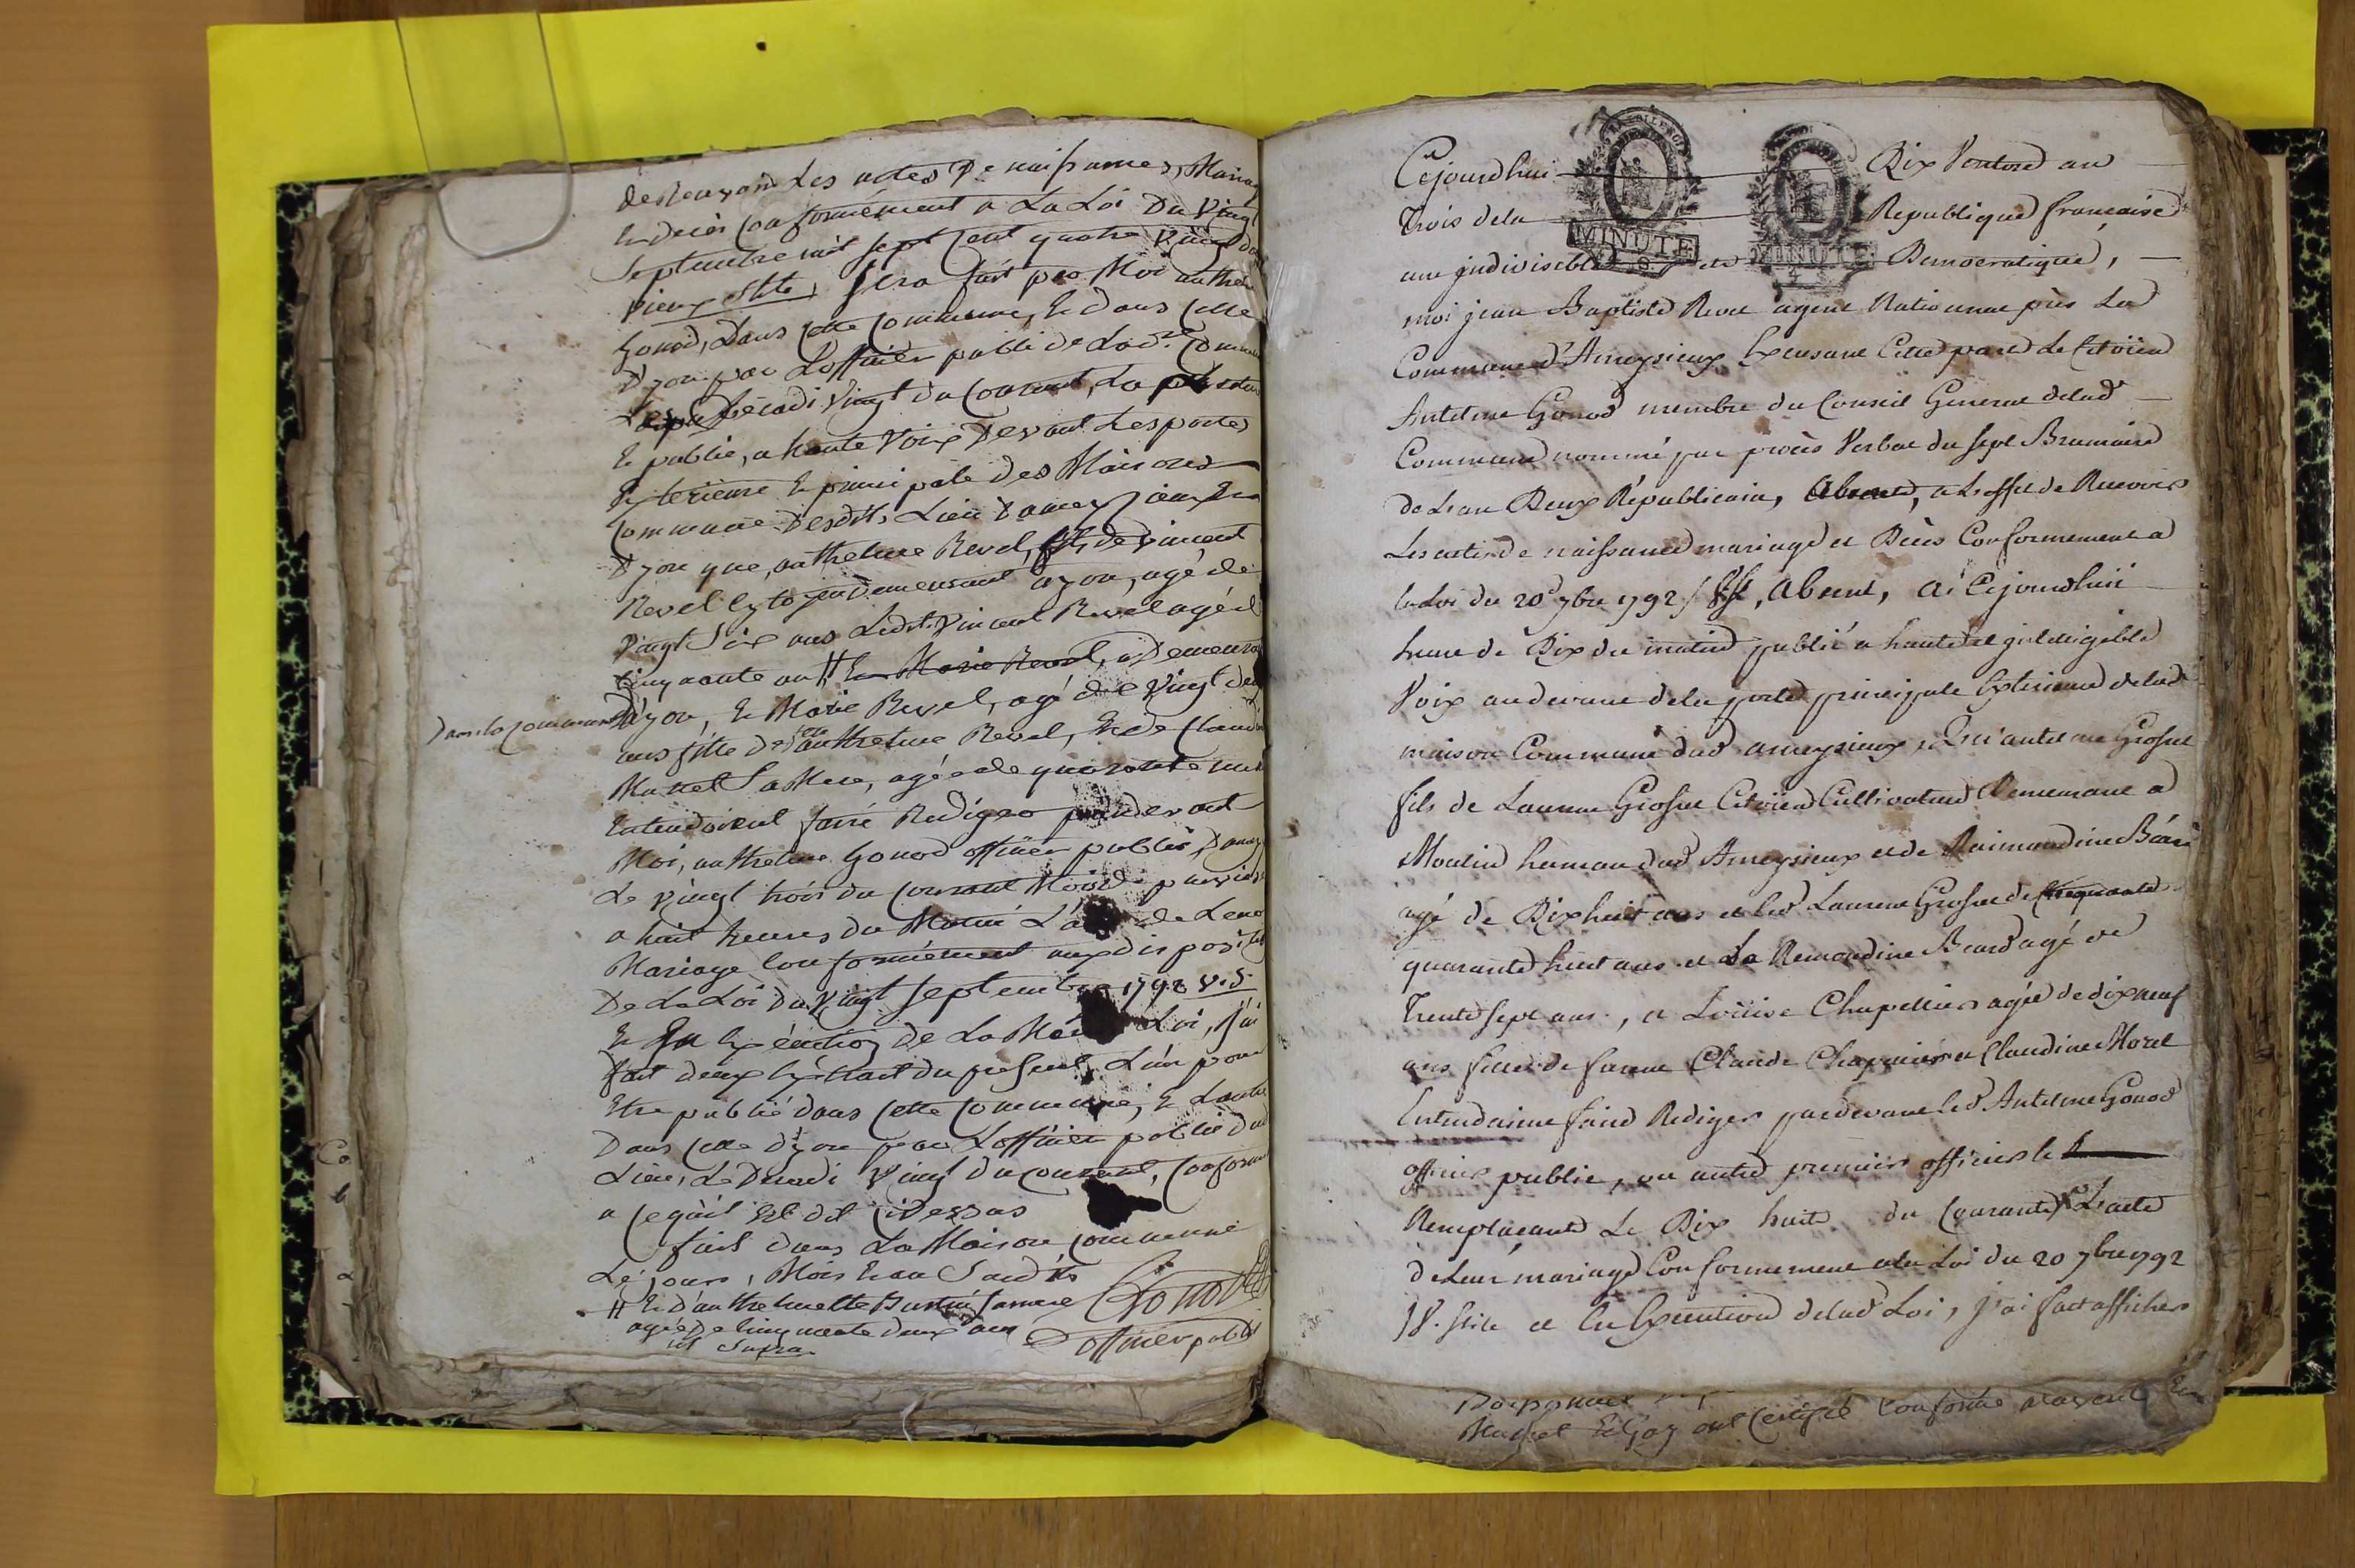 de Recevoir Les actes De naissances, Mariag
Et decès Conformément a La Loi Du Vingt
Septembre mil sept Cent quatre Vingt do
Vieux stile, sera fait par Moi anthel
Gonod, Dans Cette Commune, Et dans Celle
D'yon par L'officier public de Lad.te Commune
Decadi Vingt du Courant, La
Et publié, a haute Voix Devant Les portes
Exterieure Et principale des Maisons
Commune Desdits Lieu D'ameyzieux Et
D'yon que, anthelme Revel, fils de Vincent
Revel Cytoyen Demeurant a yon, agé de
Vingt Six ans Ledit Vincent Revel agé de
Cinquante an # Et Marie Revel, a Demeurant
Dans la Commune D'yon, Et Marie Revel, agé de Vingt deux
ans fille De anthelme Revel, Et de Claudine
Martel Sa Mere, agée de quarante neuf
Entendoirent faire Rediger pardevant
Moi, anthelme Gonod officier public, D'amey
Le Vingt trois du Courant Mois de
a huit heures du Matin L'a de Leur
Mariage Conformément aux dispositi
De La Loi Du Vingt septembre 1792 V.S.
Et En Exécution de La Mê Loi, J'ai
fait deux Extrait du present, L'un pour
Etre publié dans Cette Commune, Et L'autre
Dans Celle D'yon par L'officier public Dud
Lieu, Le Decadi Vingt du Courant, Conforme
a Ce qu'il Est dit Ci Dessus
fait dans La Maison Commune
Le jours, Mois Et an Susdits
# Et D'anthelmette sa mere Gonod
agée De Cinquante deux ans officier public
ut Supra
Cejourdhui Dix Ventose an
Trois de la Republique française
une indivisible et Democratique,
moi jean Baptiste Revel agent National près La
Commune d'Ameysieux Exersant Cette part Le Citoïen
Antelme Gonod membre du Conseil General delad
Commune nommé par procès Verbal du sept Brumaire
de L'an Deux Républicain, Absent, a L'effet de Recevoir
Les actes de naissance mariage et Décès Conformement a
la Loi du 20 7bre 1792, Absent, Ai Cejourdhuii
heure de Dix du matin publié a haute et intelligible
Voix au devant dela porte principale Exterieure delad
maison Commune dud ameysieux, Qu'antelme Grosset
fils de Laurent Grosset Citoïen Cultivateur Demeurant a
Moulin hameau dud Ameysieux et de Raimondine Béard
agé de Dixhuit ans et led Laurent Grosset de Cinquante
quarante huit ans et La Remondine Beard agé de
Trente sept ans, et Loüise Chapellier agée de dix neuf
ans fille de Claude Chapellier et Claudine Morel
Entendaient faire Rediger pardevant led Antelme Gonod
officier public, ou autre premier officier le
Remplacant Le Dix huit du Courant L'acte
de Leur mariage Conformement a la Loi du 20 7bre 1792
V. stile et En Execution delad Loi, j'ai fait afficher
Martel Et Goy ont Certifié Conforme